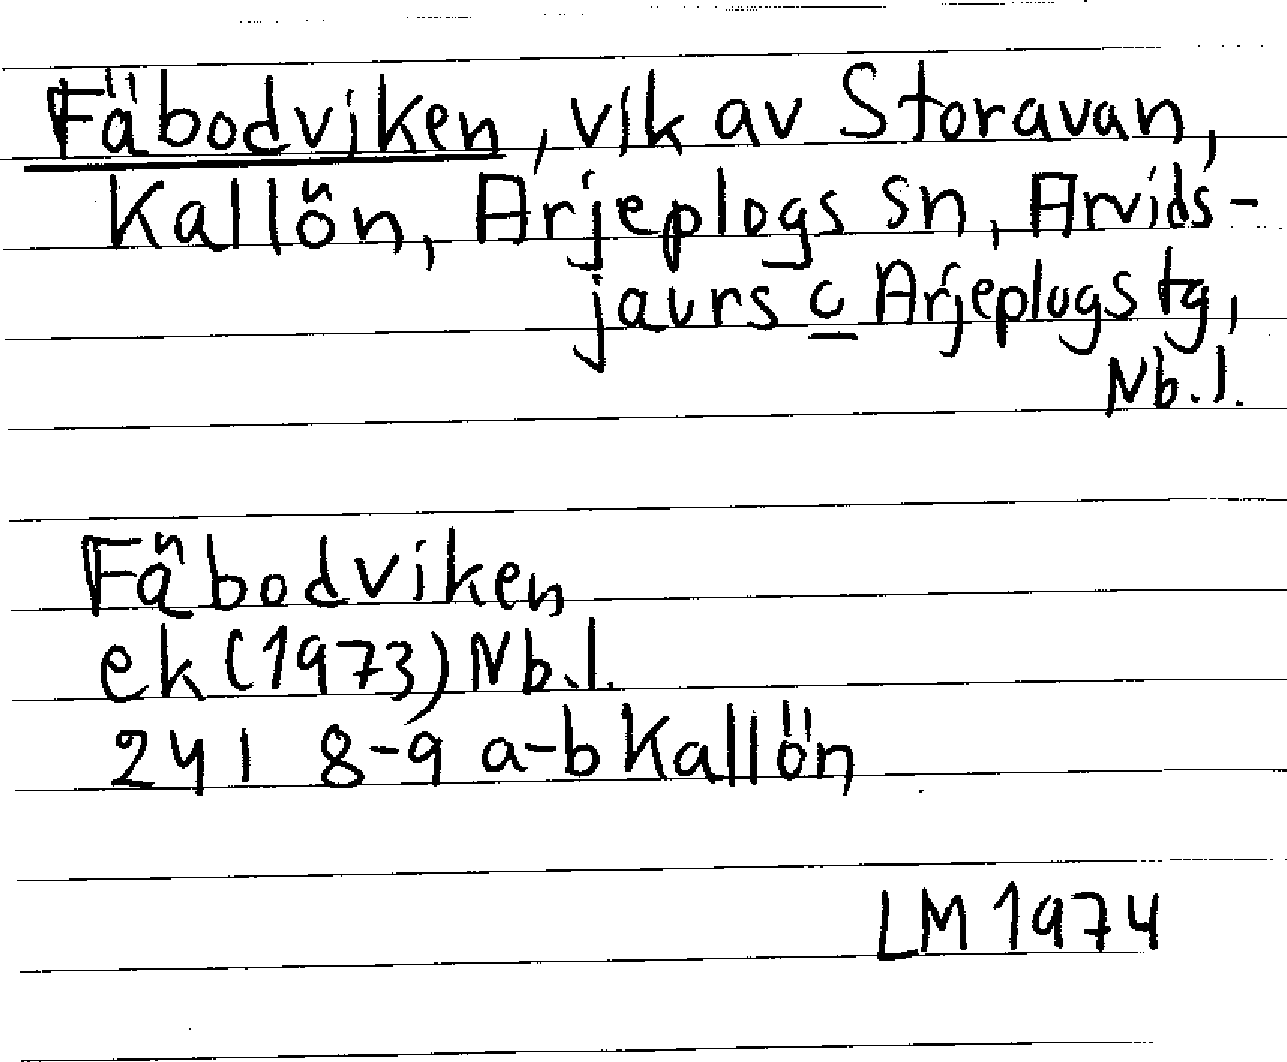 Fäbodviken, vik av Storavan,
Kallön, Arjeplogs sn, Arvids-
jaurs o Arjeplogs tg,
Nb.l.
Fäbodviken
ek (1973) Nb.l.
24 I 8-9 a-b Kallön
LM 1974